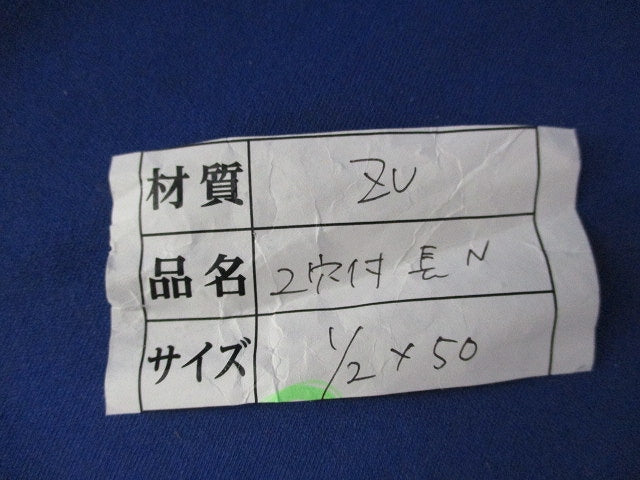 材質 ZU
品名 2穴付 長N
サイズ 1/2×50